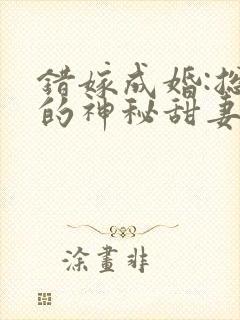 错嫁成婚:总
的神秘甜妻
涂画非